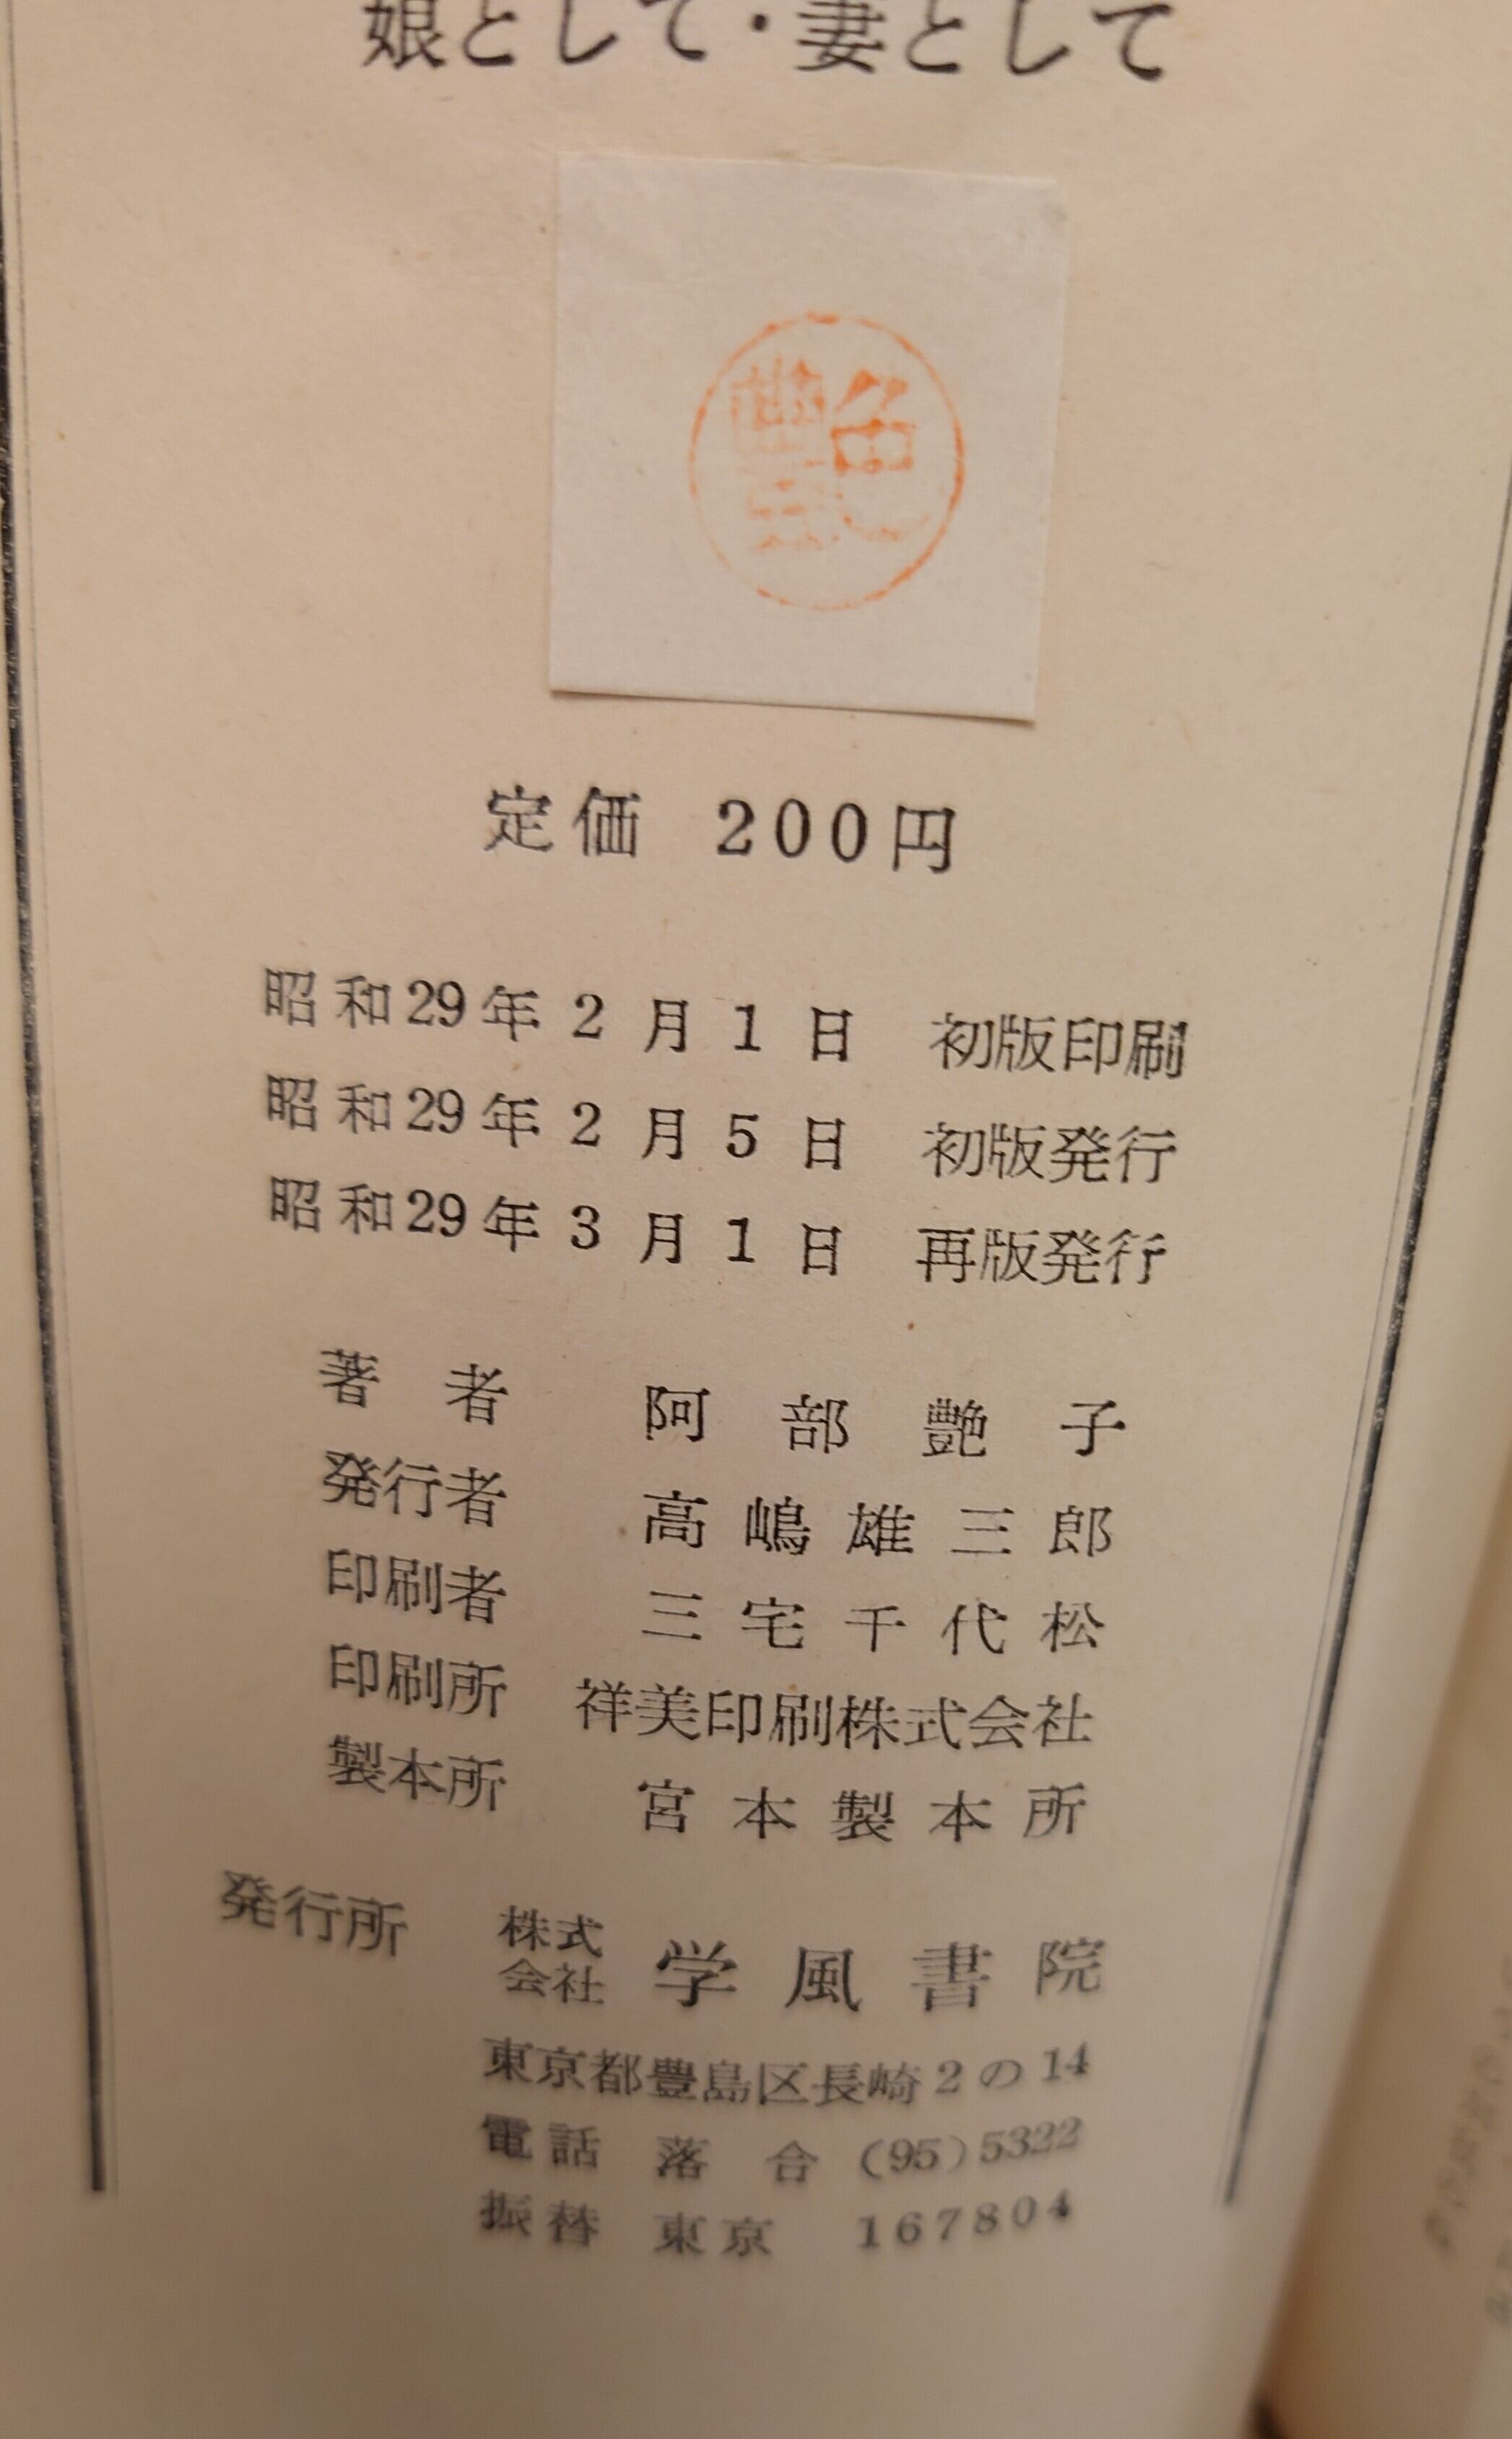 娘として・妻として
艶
定価 200円
昭和29年2月1日 初版印刷
昭和29年2月5日 初版発行
昭和29年3月1日 再版発行
著者 阿部艶子
発行者 高嶋雄三郎
印刷者 三宅千代松
印刷所 祥美印刷株式会社
製本所 宮本製本所
発行所 株式会社 学風書院
東京都豊島区長崎2の14
電話 落合 (95)5322
振替 東京 167804